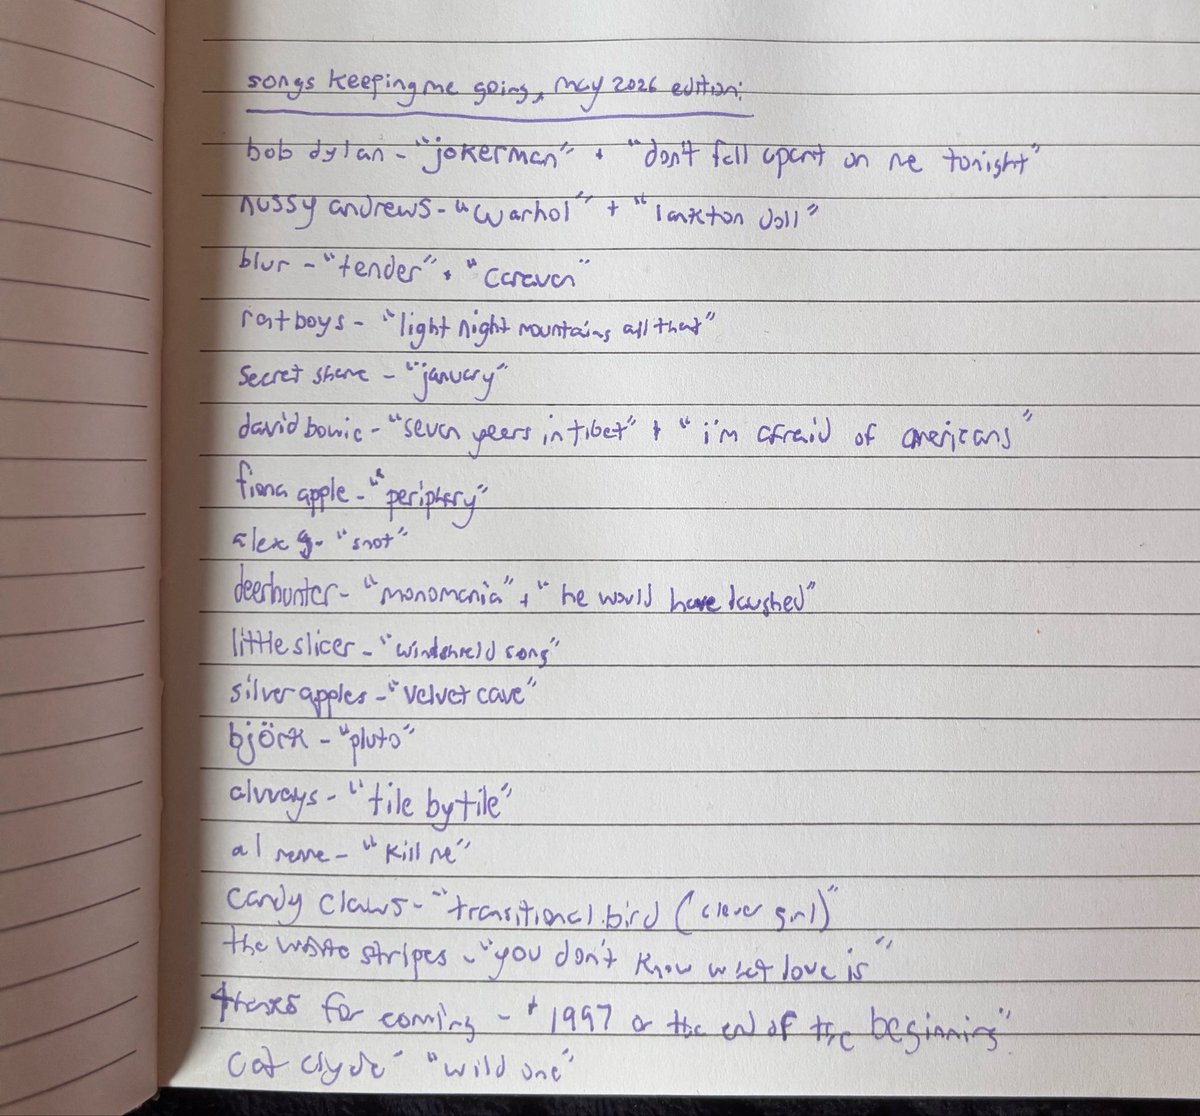 songs keeping me going, may 2026 edition:
bob dylan - "jokerman" + "don't fall apart on me tonight"
nussy andrews - "warhol" + "lankton doll"
blur - "tender" + "caravan"
ratboys - "light night mountains all that"
secret shame - "january"
david bowie - "seven years in tibet" + "i'm afraid of americans"
fiona apple - "periphery"
alex g - "snot"
deerhunter - "monomania" + "he would have laughed"
little slicer - "windshield song"
silver apples - "velvet cave"
björk - "pluto"
alvvays - "tile by tile"
al menne - "kill me"
candy claws - "transitional bird (clever girl)"
the white stripes - "you don't know what love is"
thanks for coming - "1997 or the end of the beginning"
cat clyde - "wild one"